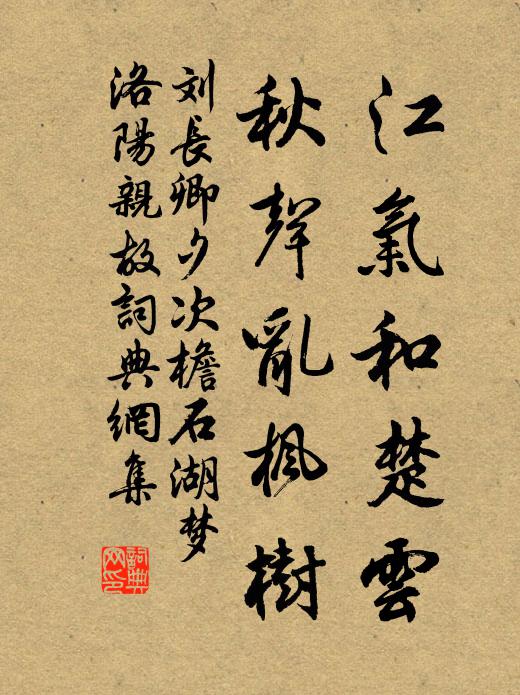 江氣和楚雲
秋聲亂楓樹
刘長卿夕次檐石湖梦
洛陽親故詞典網集
詞典
网印